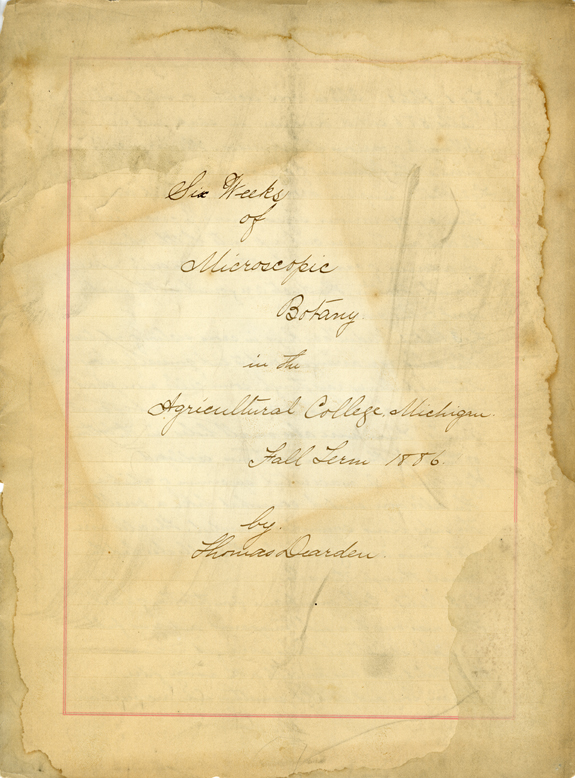 Six Weeks
of
Microscopic
Botany
in the
Agricultural College, Michigan.
Fall Term 1886.
by
Thomas Dearden.